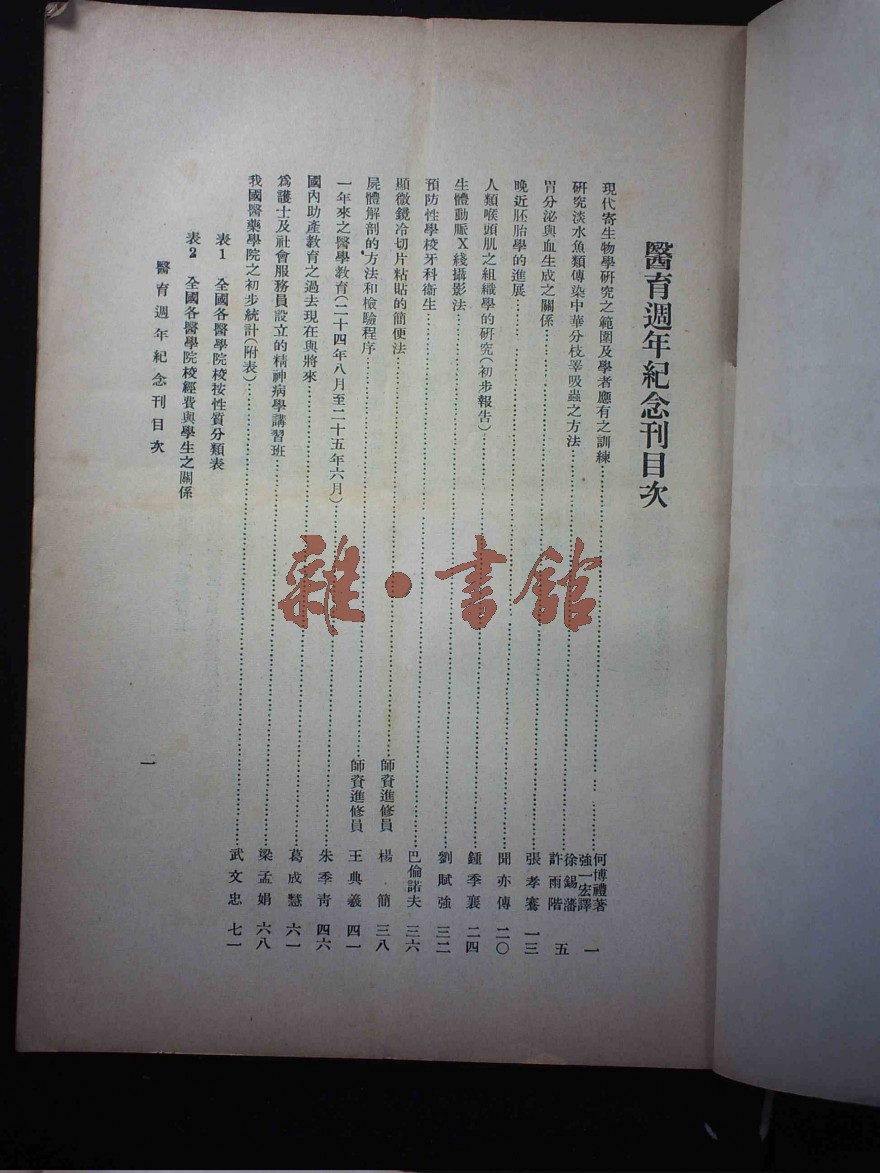 醫育週年紀念刊目次
現代寄生物學研究之範圍及學者應有之訓練……何博禮著 強一宏譯 一
研究淡水魚類傳染中華分枝睪吸蟲之方法……徐錫藩 許雨階 五
胃分泌與血生成之關係……張孝騫 一三
晚近胚胎學的進展……聞亦傳 二〇
人類喉頭肌之組織學的研究(初步報告)……鍾季襄 二四
生體動脈X綫攝影法……劉賦強 三二
預防性學校牙科衞生……巴倫諾夫 三六
顯微鏡冷切片粘貼的簡便法……師資進修員 楊簡 三八
屍體解剖的方法和檢驗程序……師資進修員 王典羲 四一
一年來之醫學教育(二十四年八月至二十五年六月)……朱季青 四六
國內助產教育之過去現在與將來……葛成慧 六一
爲護士及社會服務員設立的精神病學講習班……梁孟娟 六八
我國醫藥學院之初步統計(附表)……武文忠 七一
表1 全國各醫學院校按性質分類表
表2 全國各醫學院校經費與學生之關係
醫育週年紀念刊目次
一
雜·書館